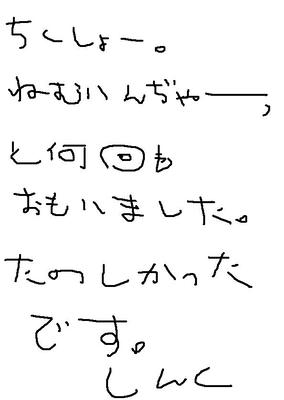 ちくしょー。
ねーむいんぢゃー、
と何回も
おもいました。
たのしかった
です。
しんく